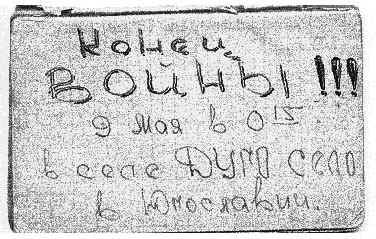 Конец
ВОЙНЫ !!!
9 мая в 0 15
в селе ДУГО СЕЛО
в Югославии.